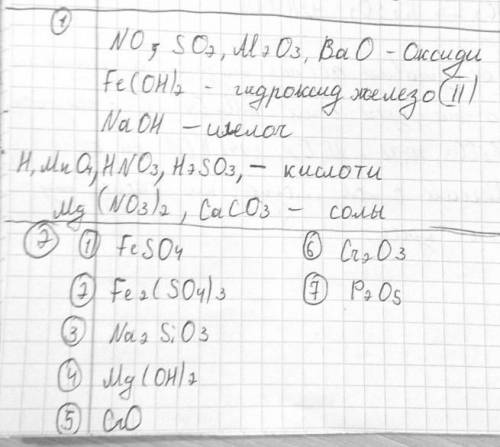 ①
NO, SO2, Al2O3, BaO - Оксиди
Fe(OH)2 - гидроксид железо (II)
NaOH - щелог
H, MnO, HNO3, H2SO3, - кислоти
Mg(NO3)2, CaCO3 - солы
② ① FeSO4 ⑥ Cr2O3
② Fe2(SO4)3 ⑦ P2O5
③ Na2SiO3
④ Mg(OH)2
⑤ CrO